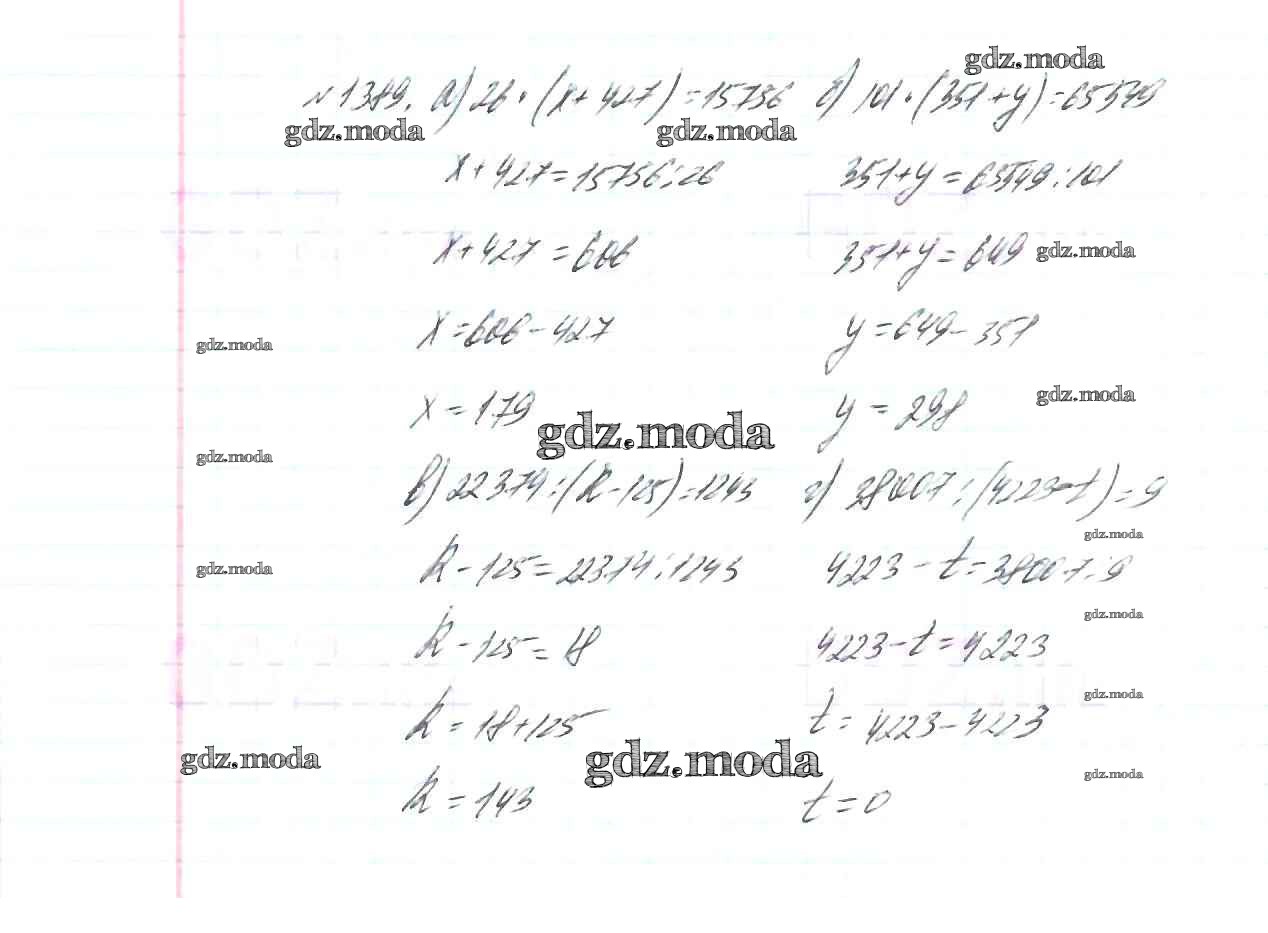 gdz.moda
№1389. а) 26 · (x + 427) = 15756 б) 101 · (351 + y) = 65549
gdz.moda gdz.moda
x + 427 = 15756 : 26 351 + y = 65549 : 101
x + 427 = 606 351 + y = 649 gdz.moda
gdz.moda x = 606 - 427 y = 649 - 351
x = 179 y = 298 gdz.moda
gdz.moda
gdz.moda
в) 22374 : (k - 125) = 1243 г) 38007 : (4223 - t) = 9
gdz.moda
gdz.moda k - 125 = 22374 : 1243 4223 - t = 38007 : 9
gdz.moda
k - 125 = 18 4223 - t = 4223
gdz.moda
k = 18 + 125 t = 4223 - 4223
gdz.moda gdz.moda gdz.moda
k = 143 t = 0